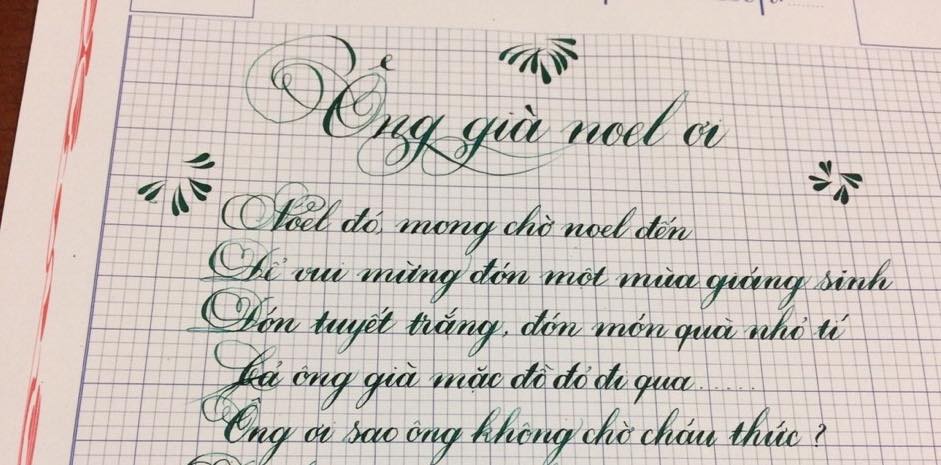 Ông già noel ơi
Noel đó, mong chờ noel đến
Để vui mừng đón một mùa giáng sinh
Đón tuyết trắng, đón món quà nhỏ tí
Cả ông già mặc đồ đỏ đi qua......
Ông ơi sao ông không chờ cháu thức?